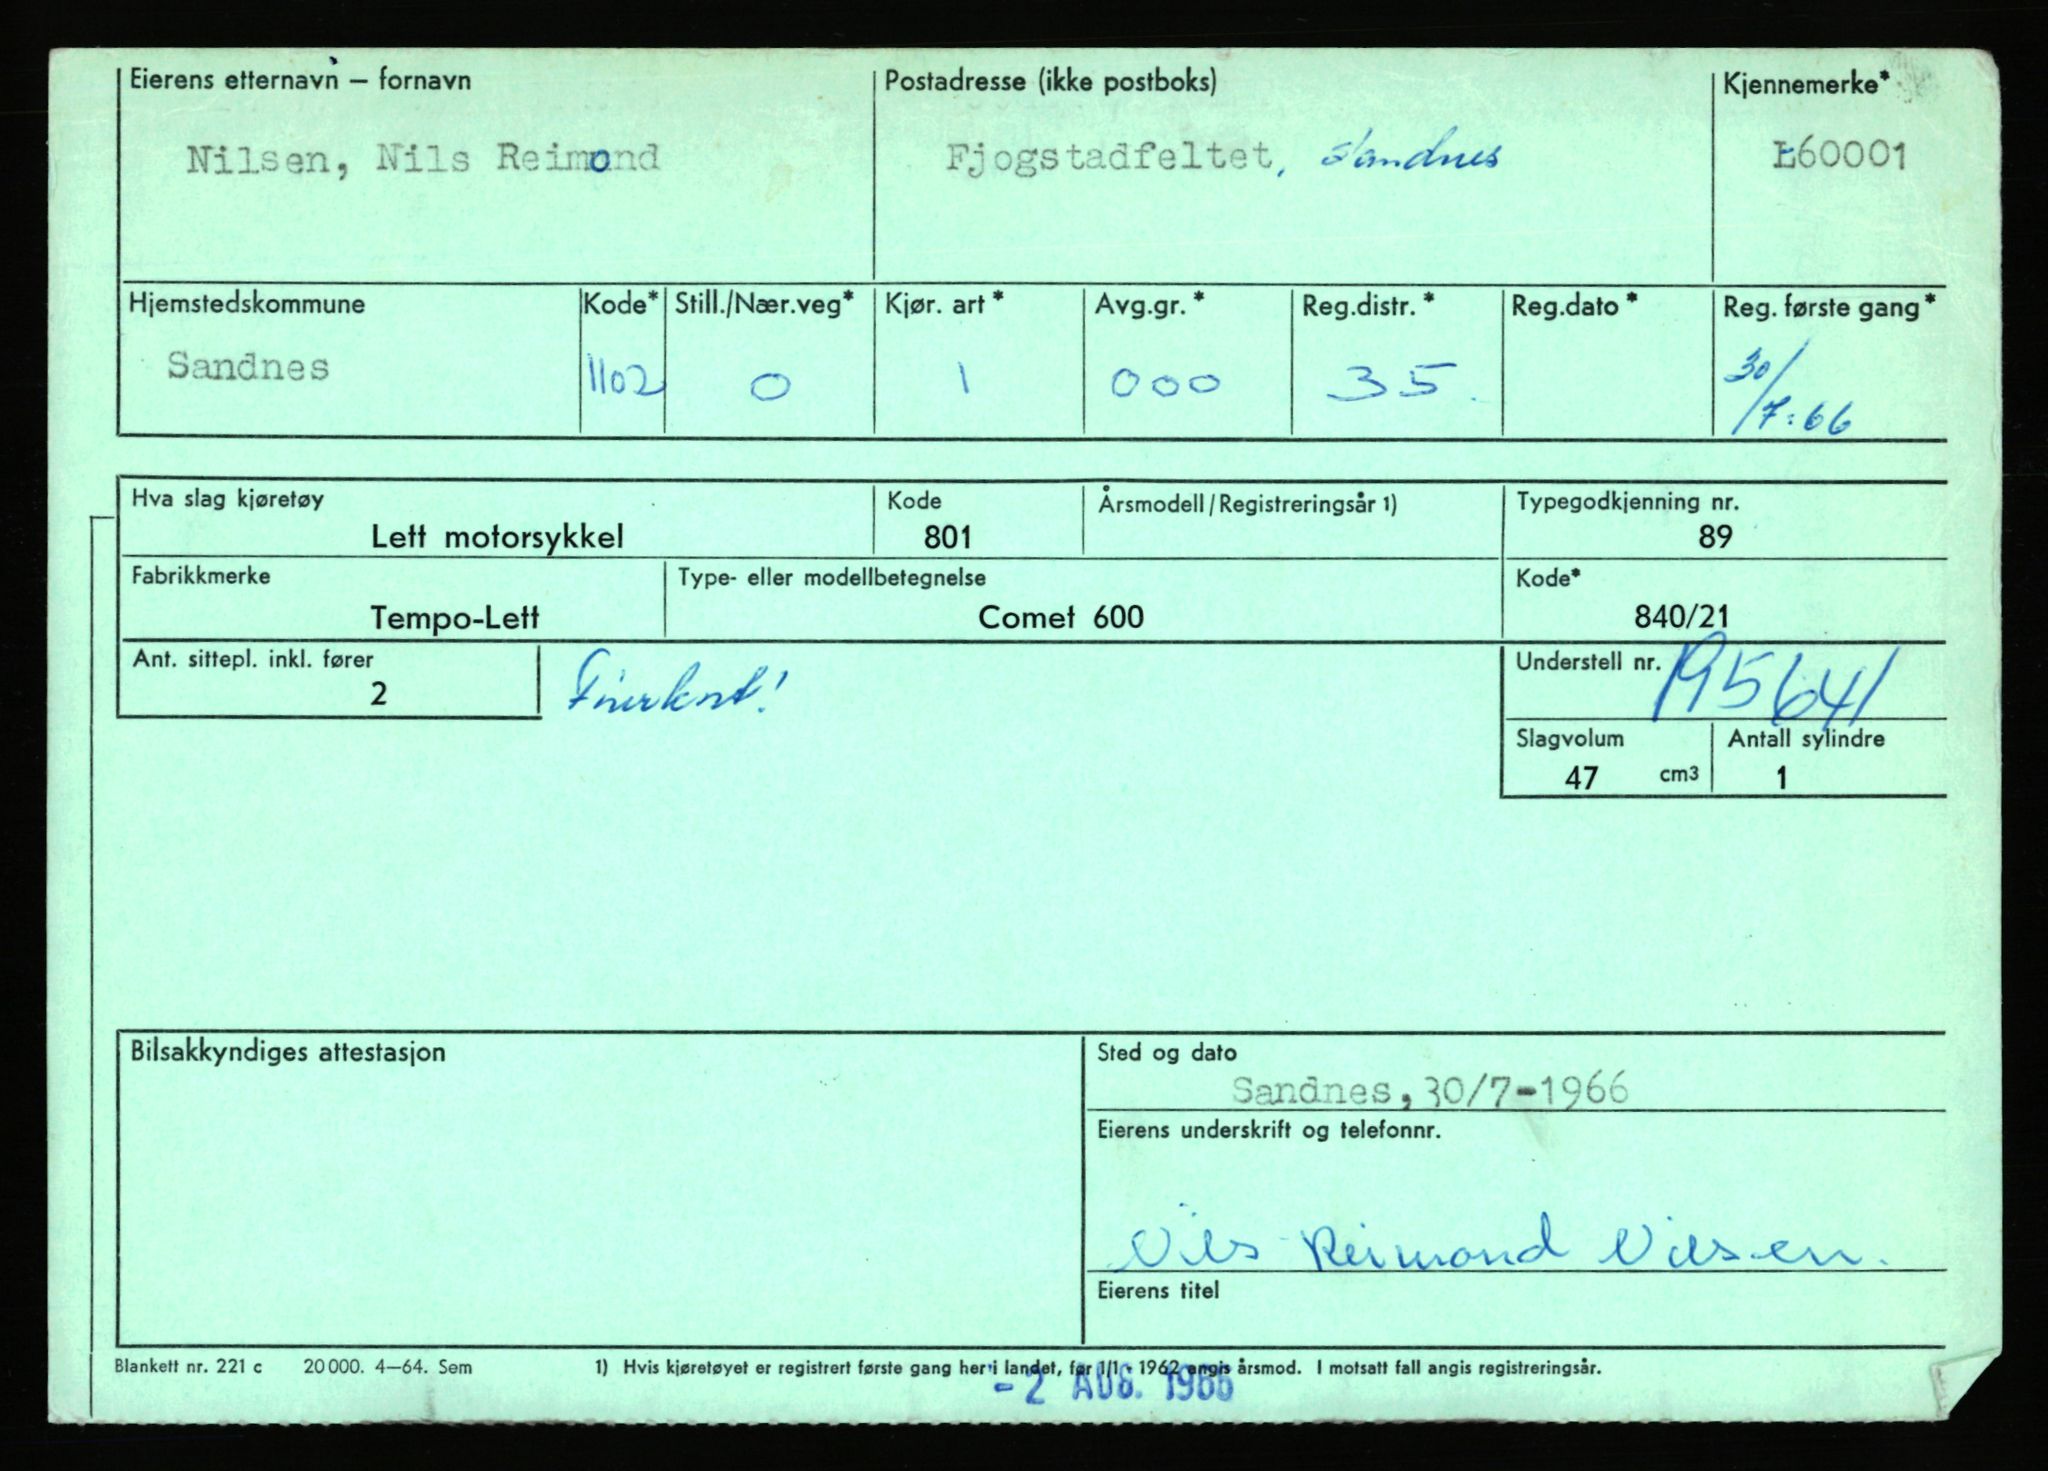 Eierens etternavn – fornavn Postadresse (ikke postboks) Kjennemerke*
Nilsen, Nils Reimond Fjogstadfeltet, Sandnes L-60001
Hjemstedskommune Kode* Still./Nær.veg* Kjør. art* Avg.gr.* Reg.distr.* Reg.dato* Reg. første gang*
Sandnes 1102 0 1 000 35. 30/7-66
Hva slag kjøretøy Kode Årsmodell/Registreringsår 1) Typegodkjenning nr.
Lett motorsykkel 801 89
Fabrikkmerke Type- eller modellbetegnelse Kode*
Tempo-Lett Comet 600 840/21
Ant. sittepl. inkl. fører Understell nr. 195641
2
Slagvolum Antall sylindre
47 cm3 1
Bilsakkyndiges attestasjon Sted og dato
Sandnes, 30/7-1966
Eierens underskrift og telefonnr.
Nils Reimond Nilsen.
Eierens titel
Blankett nr. 221 c 20 000. 4–64. Sem 1) Hvis kjøretøyet er registrert første gang her i landet, før 1/1 - 1962 angis årsmod. I motsatt fall angis registreringsår.
- 2 AUG. 1966